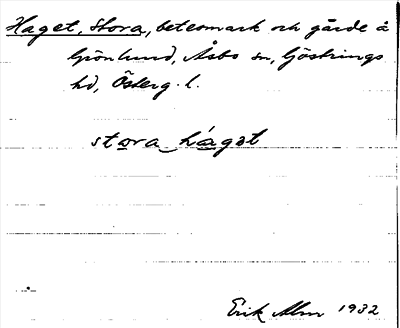 Haget, Stora, betesmark och gärde å
Grönlund, Åsbo sn, Göstrings
hd, Österg. l.
stora hágət
Erik Alm 1932